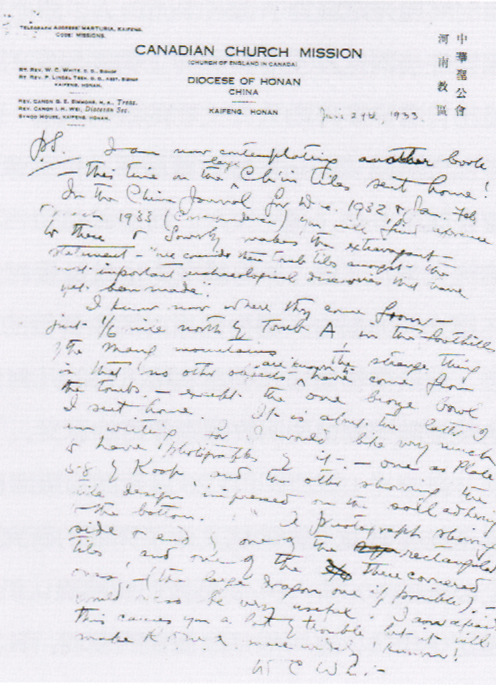 TELEGRAPH ADDRESS: "MARTURIA, KAIFENG.
CODE: MISSIONS.
CANADIAN CHURCH MISSION
(CHURCH OF ENGLAND IN CANADA)
DIOCESE OF HONAN
CHINA
KAIFENG, HONAN
RT. REV. W. C. WHITE, D. D., BISHOP
KAIFENG, HONAN.
REV. CANON G. E. SIMMONS, M. A., Treas.
REV. CANON I. H. WEI, Diocesan Sec.
SYNOD HOUSE, KAIFENG, HONAN.
中華聖公會
河南教區
June 29th, 1933.
P.S. I am now contemplating another book
- this time on the large Ch'in tiles sent home!
In the China Journal for Dec. 1932 & Jan. Feb
1933 (Correspondence) you will find reference
to these & Sowerby makes the extravagant
statement - "we consider these tomb tiles amongst the
most important archaeological discoveries that have
yet been made".
I know now where they come from -
just 1/6 mile north of Tomb A, in the foothills
of the Mang mountains. The strange thing
is that no other objects are known to have come from
the tombs except the one bronze bowl
I sent home. It is about the latter I
am writing for I would like very much
to have photographs of it. - one as Plate
58 of Koop and the other showing the
tile design impressed on the soil adhering
to the bottom. A photograph showing
side & end of one of the rectangular
tiles, and one of the three cornered
ones, - (the large dragon one if possible). -
would be very useful. I am afraid
this causes you a lot of trouble, but it will
make R.O.M.A. more widely known!
W C W :-